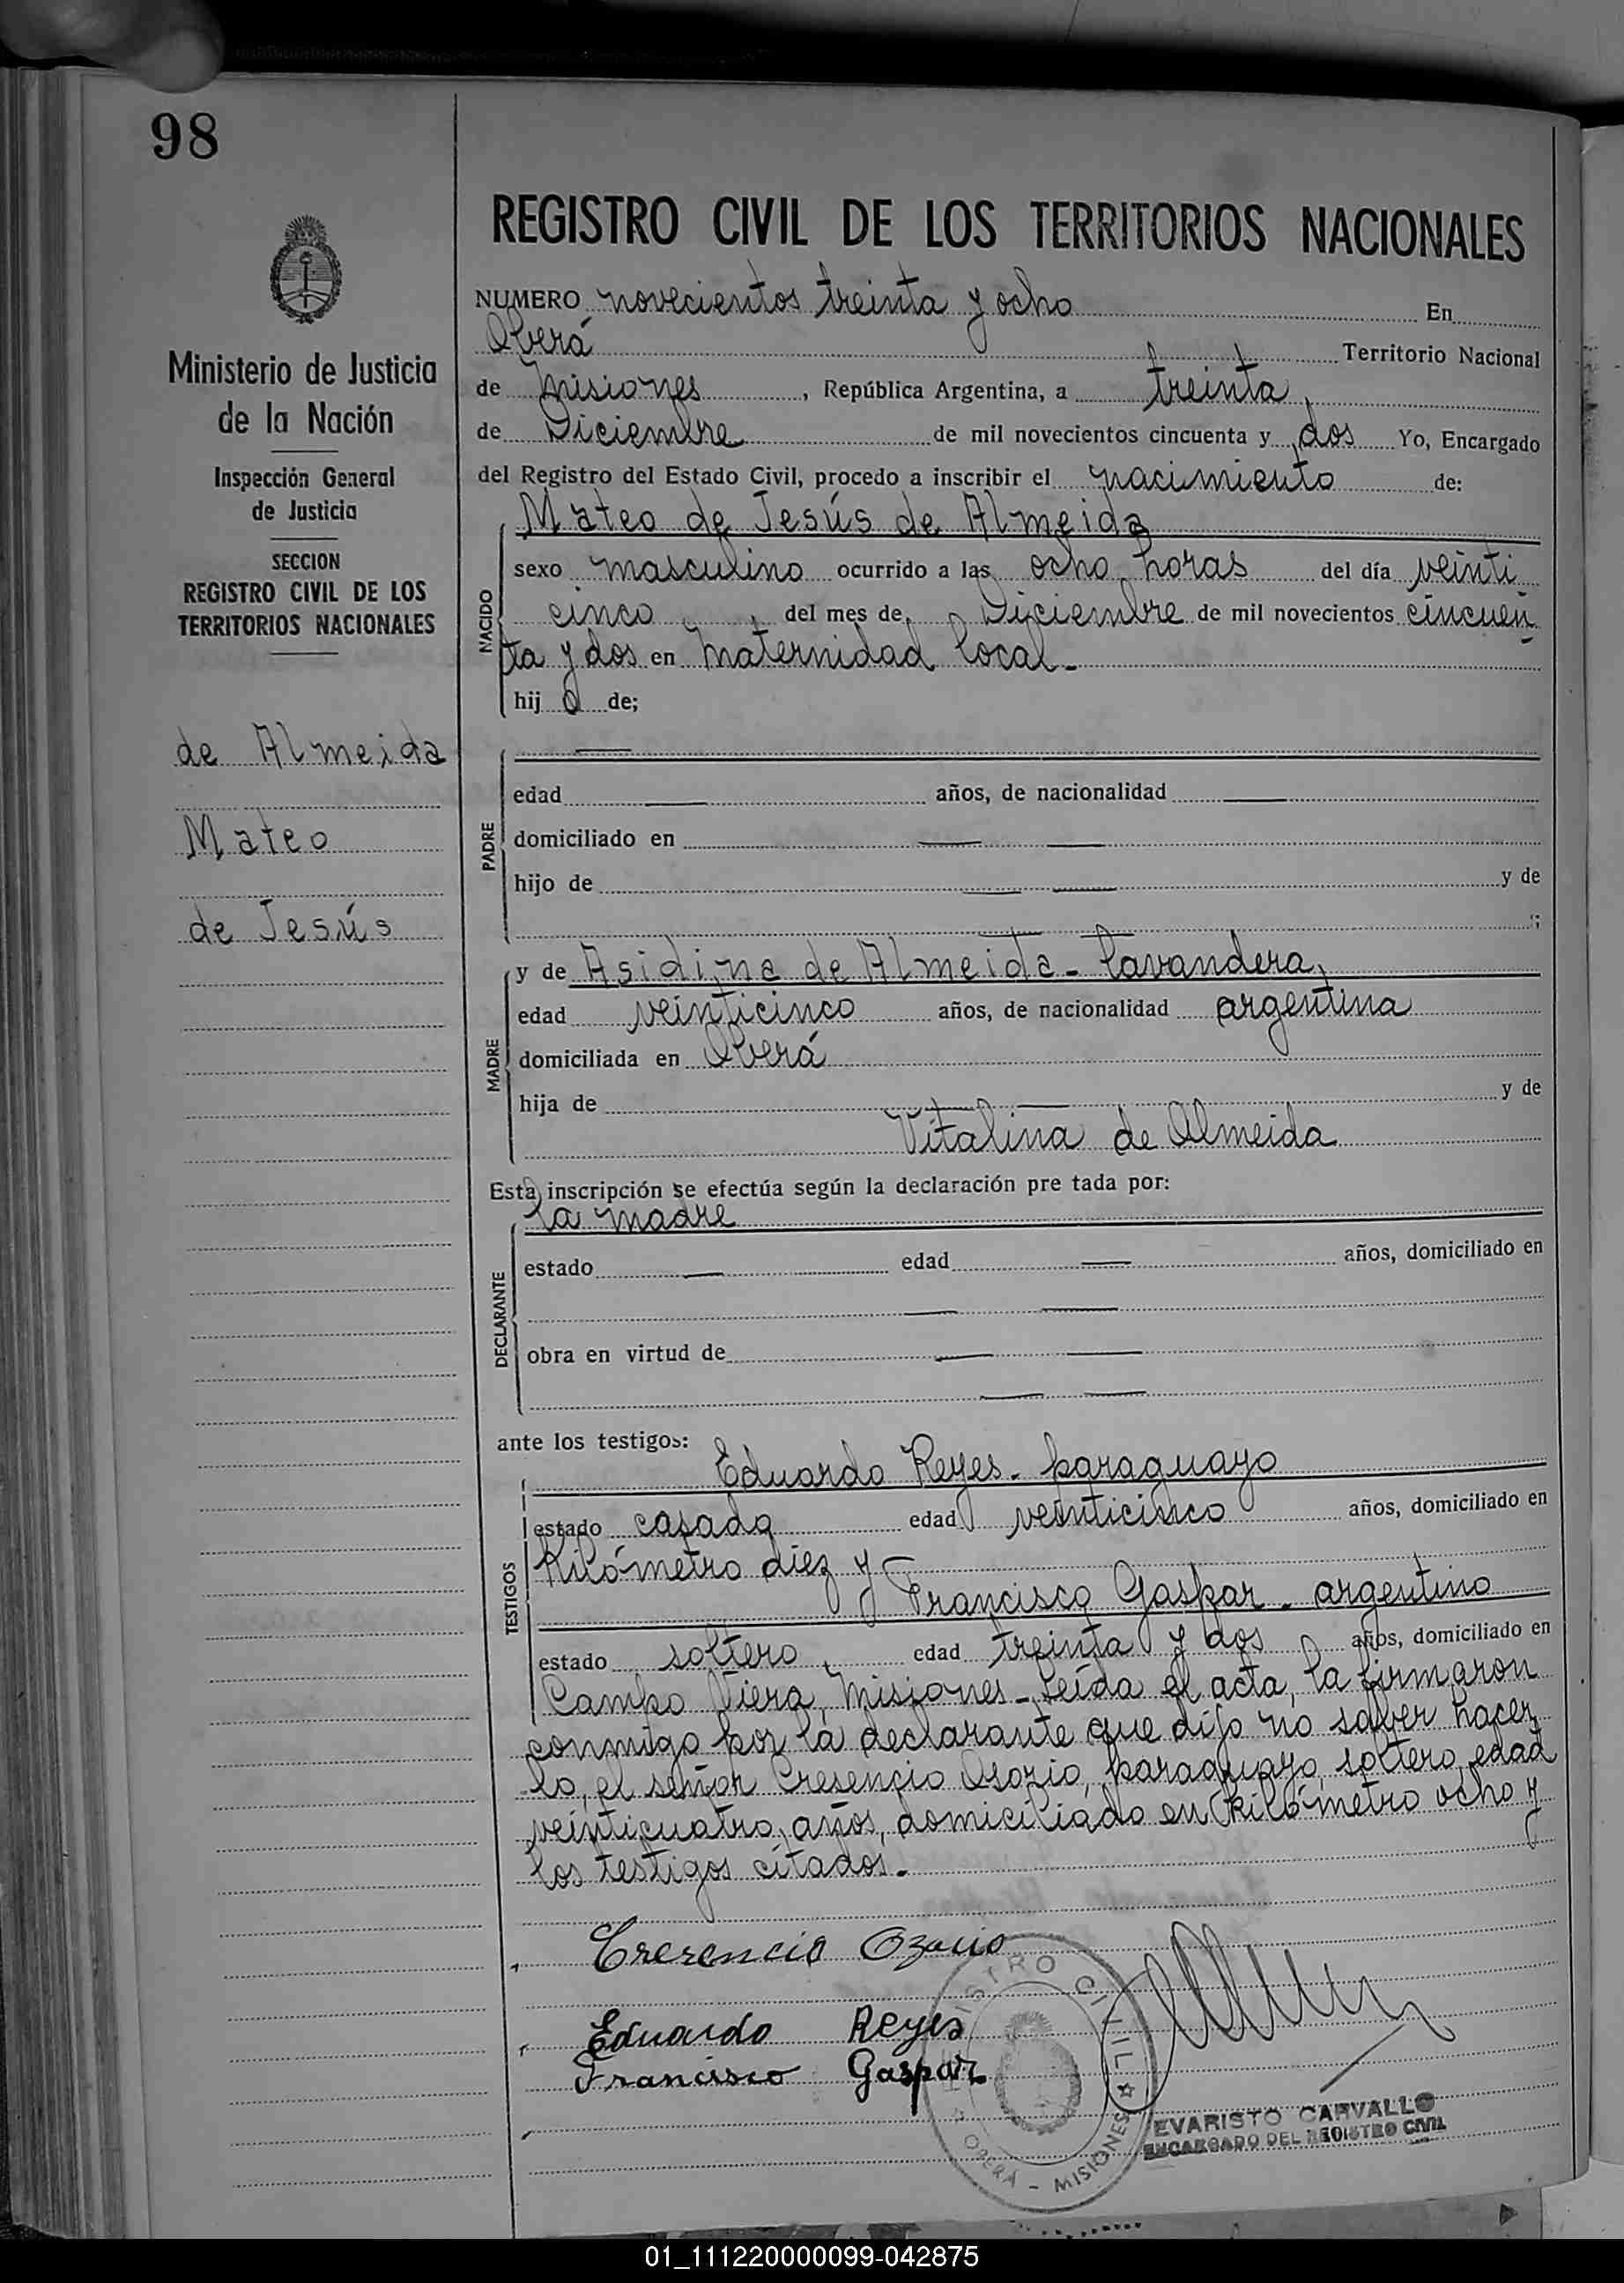 98
Ministerio de Justicia
de la Nación
Inspección General
de Justicia
SECCION
REGISTRO CIVIL DE LOS
TERRITORIOS NACIONALES
de Almeida
Mateo
de Jesús
REGISTRO CIVIL DE LOS TERRITORIOS NACIONALES
NUMERO novecientos treinta y ocho En
Oberá Territorio Nacional
de Misiones, República Argentina, a treinta
de Diciembre de mil novecientos cincuenta y dos Yo, Encargado
del Registro del Estado Civil, procedo a inscribir el nacimiento de:
Mateo de Jesús de Almeida
NACIDO
sexo masculino ocurrido a las ocho horas del día veinti
cinco del mes de Diciembre de mil novecientos cincuen
ta y dos en Maternidad local-
hij o de;
PADRE
edad años, de nacionalidad
domiciliado en
hijo de y de
;
MADRE
y de Asidina de Almeida - lavandera,
edad veinticinco años, de nacionalidad argentina
domiciliada en Oberá
hija de y de
Vitalina de Almeida
Esta inscripción se efectúa según la declaración pre tada por:
la madre
DECLARANTE
estado edad años, domiciliado en
obra en virtud de
ante los testigos:
TESTIGOS
Eduardo Reyes - paraguayo
estado casado edad veinticinco años, domiciliado en
Kilómetro diez y
Francisco Gaspar - argentino
estado soltero edad treinta y dos años, domiciliado en
Campo Viera, Misiones - Leída el acta, la firmaron
conmigo por la declarante que dijo no saber hacer
lo, el señor Cresencio Osorio, paraguayo, soltero, edad
veinticuatro años, domiciliado en Kilómetro ocho y
los testigos citados.-
Crerencio Ozorio
Eduardo Reyes
Francisco Gaspar
REGISTRO CIVIL
OBERÁ - MISIONES
EVARISTO CARVALLO
ENCARGADO DEL REGISTRO CIVIL
01_111220000099-042875